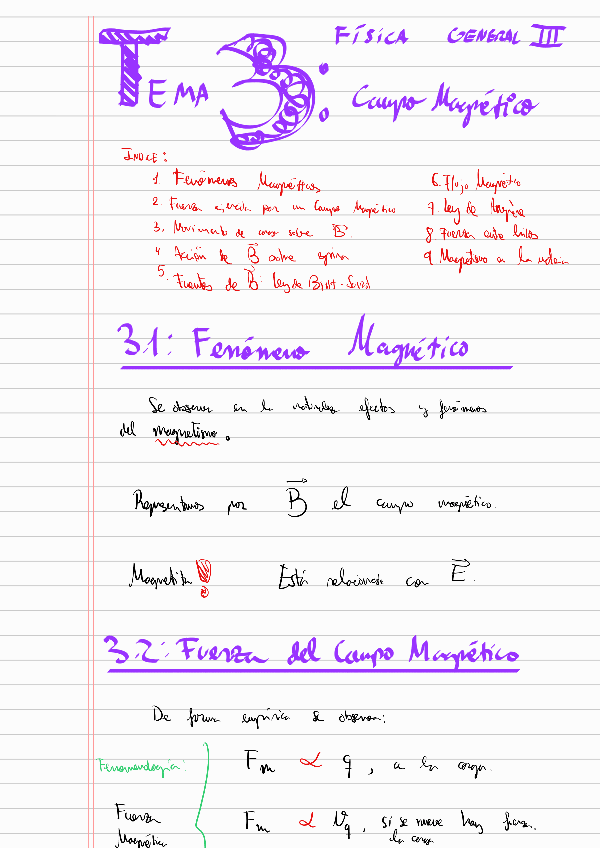 FÍSICA GENERAL III
TEMA 3:
Campo Magnético
INDICE:
1. Fenómenos Magnéticos
2. Fuerza ejercida por un Campo Magnético
3. Movimiento de carga sobre B
4. Acción de B sobre espira
5. Fuentes de B: Ley de Biot-Savart
6. Flujo Magnético
7. Ley de Ampère
8. Fuerza entre hilos
9. Magnetismo en la materia
3.1: Fenómeno Magnético
Se observan en la naturaleza efectos y fenómenos
del magnetismo.
Representamos por B el campo magnético.
Magnetita! Está relacionado con E.
3.2: Fuerza del Campo Magnético
De forma empírica se observan:
Fenomenología:
Fm α q, a la carga.
Fuerza
Magnética
Fm α Vq, si se mueve hay fuerza.
la carga